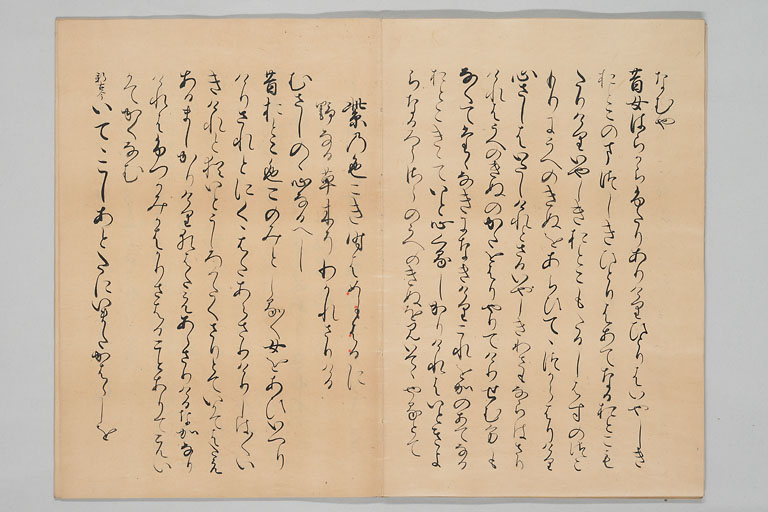 なむや
昔女はらからふたりありけりひとりはいやしき
おとこのまつしきひとりはあてなるおとこも
たりけりいやしきおとこもたるしはすのつこ
もりにうへのきぬをあらひててつからはりけり
心さしはいたしけれとさるいやしきわさもならはさり
けれはうへのきぬのかたをはりやりてけりせむ方も
なくてたゝなきになきけりこれをかのあてなる
おとこきゝていと心くるしかりけれはいときよ
らなるろうさうのうへのきぬを見いてゝやるとて
紫の色こき時はめもはるに
野なる草木そわかれさりける
むさしのゝ心なるへし
昔おとこ色このみとしるしる女をあひいへり
けりされとにくゝはたあらさりけりしはしはい
きけれと猶いとうしろめたくさりとていてはたえ
あるましかりけり猶はたえあらさりけるなかなり
けれはふつかみかはかりさはることありてえい
かてかくなむ
新古今 いてゝこしあとたにいまたかはらしを